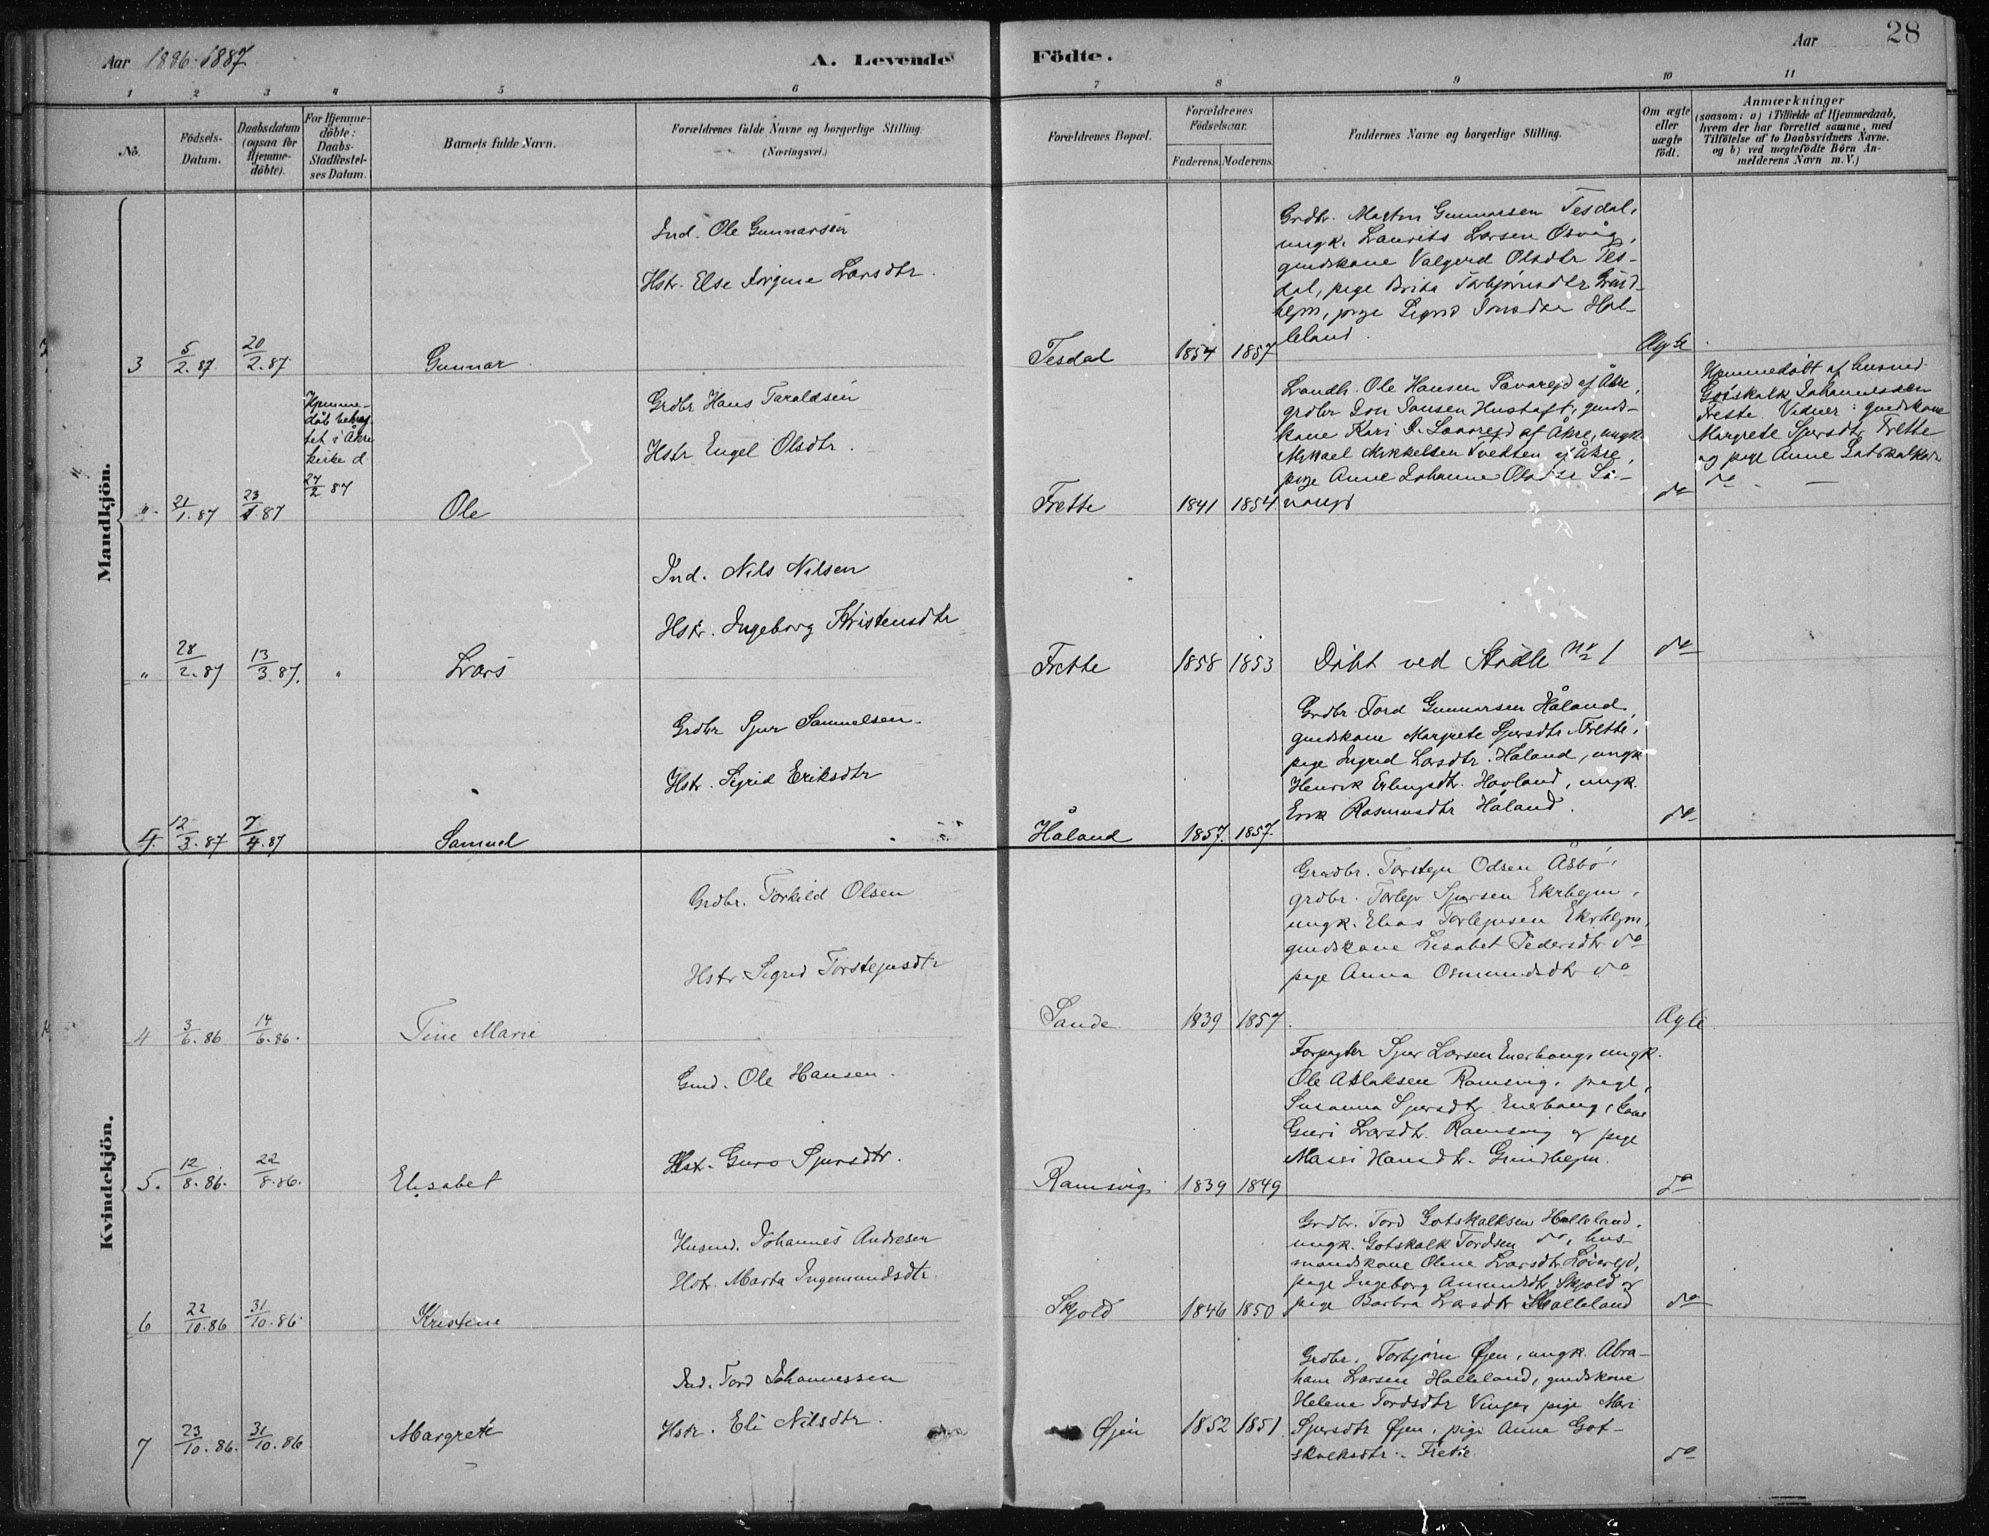 Aar 1886-1887
A. Levende
Födte.
Aar
28
1 2 3 4 5 6 7 8 9 10 11
No.
Födsels-
Datum.
Daabsdatum
(ogsaa for
Hjemme-
döbte).
For Hjemme-
döbte:
Daabs-
Stadfæstel-
ses Datum.
Barnets fulde Navn.
Forældrenes fulde Navne og borgerlige Stilling.
(Næringsvei.)
Forældrenes Bopæl.
Forældrenes
Födselsaar.
Faderens. Moderens.
Faddernes Navne og borgerlige Stilling.
Om ægte
eller
uægte
födt.
Anmærkninger
(saasom: a) i Tilfælde af Hjemmedaab,
hvem der har forrettet samme, med
Tilföielse af to Daabsvidners Navne.
og b) ved uægtefödte Børn An-
melderens Navn m. V.)
Mandkjön.
3
5/2.87
20/2.87
Gunnar
Ind. Ole Gunnarsen
Hstr. Else Jorgine Larsdtr.
Tesdal
1854 1857
Grdbr. Gunnarsen Tesdal,
ungk. Laurits Larsen
gmdskone Valgerd Olsdtr Tes-
dal, pige Brita Torbjørnsdtr Grind-
hejm, pige Sigrid Hal-
leland.
Ægte
21/1.87
23/1.87
Hjemme-
dåb
tet i Åkre
kirke d.
27/2 87
Ole
Grdbr Hans Taraldsen
Hstr Engel Olsdtr.
Frette
1841 1854
Landh. Ole Hansen Såvarejd af Åkre,
grdbr Jon Jansen Hustaft, gmds-
kone Kari af Åkre, ungk.
Mikael Mikkelsen Tvetten af Åkre,
pige Anne Johanne Olsdtr Så-
varejd
do
Hjemmedøbt af husmd.
Gotskalk Johannessen
Frette. Vidner: gmdskone
Margrete Sjursdtr Frette
og pige Anne Gotskalksdtr
do
"
28/2.87
13/3.87.
"
Lars
Ind. Nils Nilsen
Hstr. Ingeborg Kristensdtr
Frette
1858 1853
Døbt ved 1
do
4.
12/3.87
7/4.87
Samuel
Grdbr Sjur Samuelsen
Hstr. Sigrid Eriksdtr
Håland
1857. 1857.
Grdbr. Tord Gunnarsen Håland,
gmdskone Margrete Sjursdtr Frette,
pige Ingrid Larsdtr. Håland, ungk
Henrik Erlingsdtr. Havland, ungk.
Erik Rasmusdtr Håland.
do
Kvindekjön.
4
3/6.86
14/6.86.
Tine Marie
Grdbr. Torkild Olsen
Hstr Sigrid Torstejnsdtr
Sande
1839 1857.
Grdbr. Torstejn Odsen Åsbø,
grdbr. Torlejv Sjursen Ekrhejm,
ungk. Elias Torlejvsen Ekrhejm,
gmdskone Lisabet Pedersdtr do
pige Anna Osmundsdtr do
Ægte
5.
12/8.86.
22/8.86.
Elisabet
Gmd. Ole Hansen.
Hst. Guro Sjursdtr.
Ramsvig
1839 1849
Forpagter Sjur Larsen Enerhaug, ungk.
Ole Aslaksen Ramsvig, pige,
Susanna Sjursdtr Enerhaug, kone
Guri Larsdtr. Ramsvig og pige
Massi Hansdtr. Grindhejm.
do
6
22/10.86
31/10.86.
Kristine
Husmd. Johannes Andresen
Hstr. Marta Ingemundsdtr.
Skjold
1846 1850
Grdbr. Tord Gotskalksen Halleland.
ungk. Gotskalk Tordsen do, hus-
mandskone Oline Larsdtr
pige Ingeborg Amundsdtr Skjold og
pige Barbra Larsdtr Halleland
do
7
23/10.86.
31/10.86
Margrete
Ind. Tord Johannessen
Hstr. Eli Nilsdtr.
Øjen
1852 1851.
Grdbr. Torbjørn Øjen, ungk. Abra-
ham Larsen Halleland, gmdskone
Helene Tordsdtr Vinger pige Mari
Sjursdtr Øjen, pige Anna Got-
skalksdtr. Frette
do